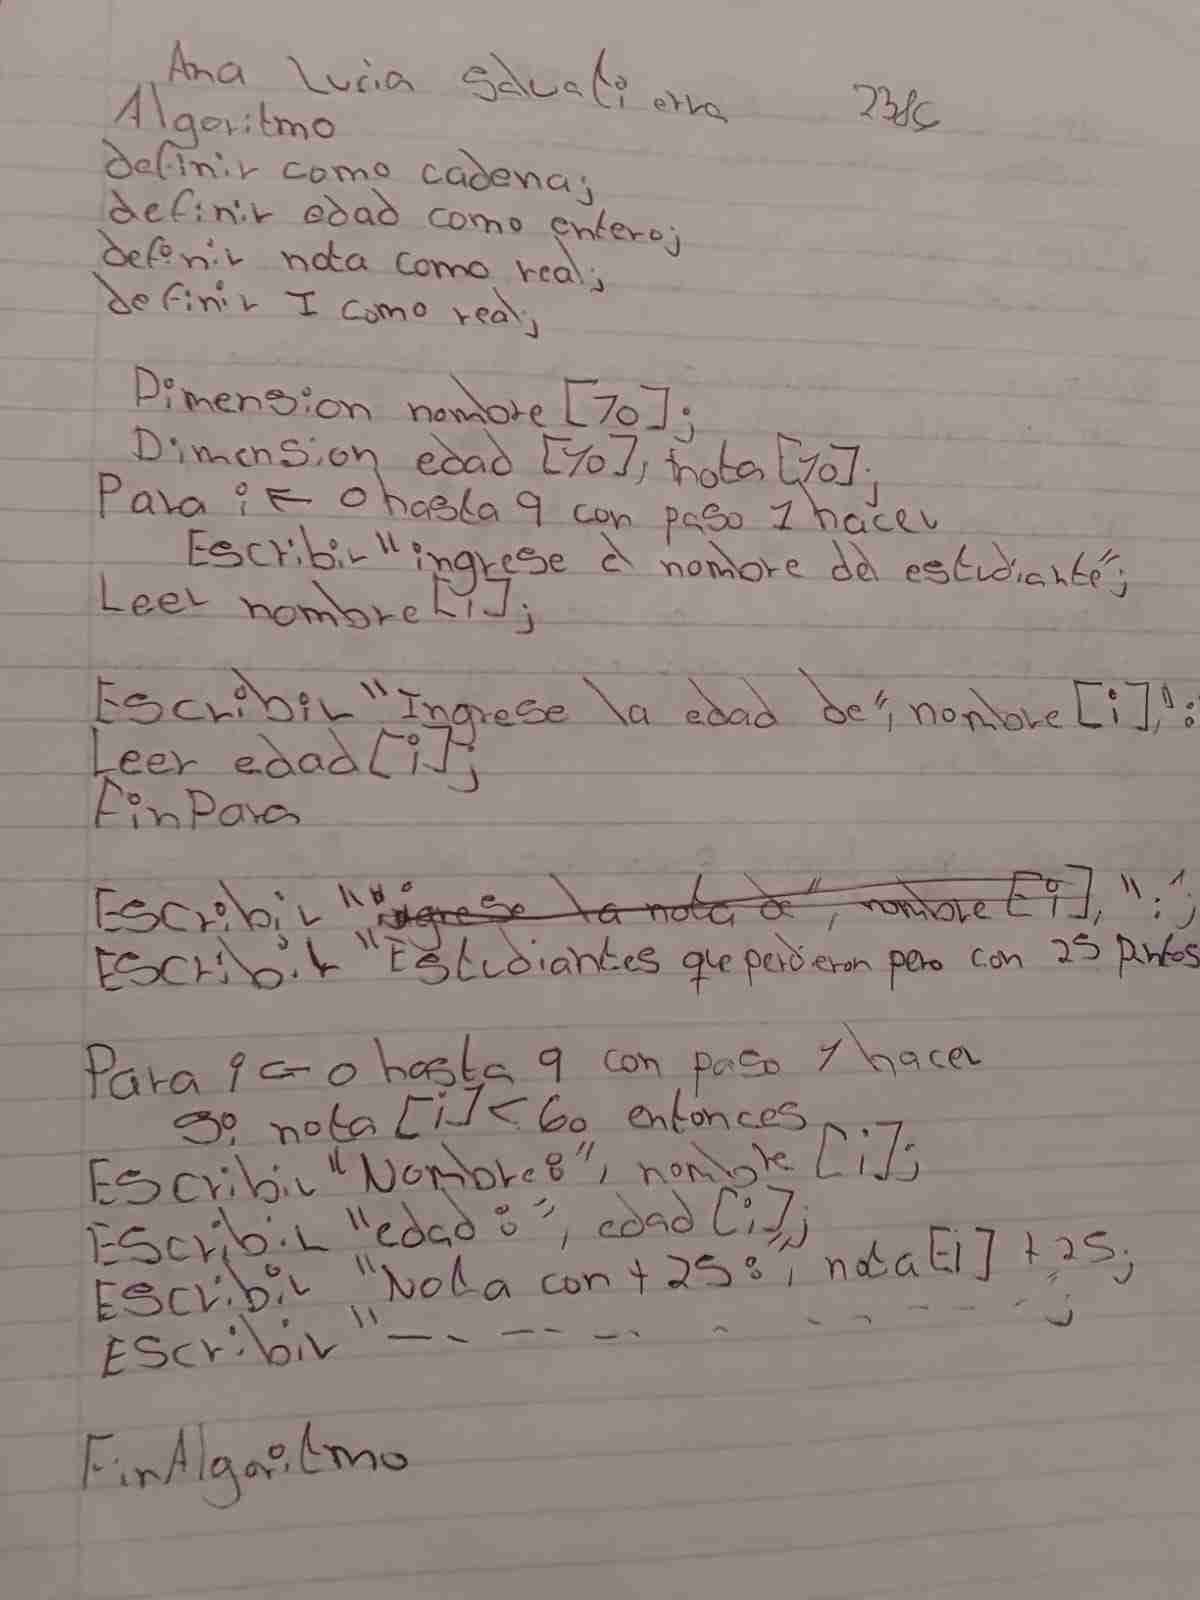 Ana Lucia Salvatierra
Algoritmo
definir como cadena;
definir edad como entero;
definir nota como real;
definir I como real;
Dimension nombre [10];
Dimension edad [10], nota [10];
Para i ← 0 hasta 9 con paso 1 hacer
Escribir "ingrese el nombre del estudiante";
Leer nombre [i];
Escribir "Ingrese la edad de", nombre [i], ":
Leer edad [i];
FinPara
Escribir "ingrese la nota d", nombre [i], ":";
Escribir "Estudiantes que perdieron pero con 25 puntos
Para i ← 0 hasta 9 con paso 1 hacer
Si nota [i] < 60 entonces
Escribir "Nombre:", nombre [i];
Escribir "edad:", edad [i];
Escribir "Nota con + 25:", nota [i] + 25;
Escribir "- - - - - - - - - -";
FinAlgoritmo